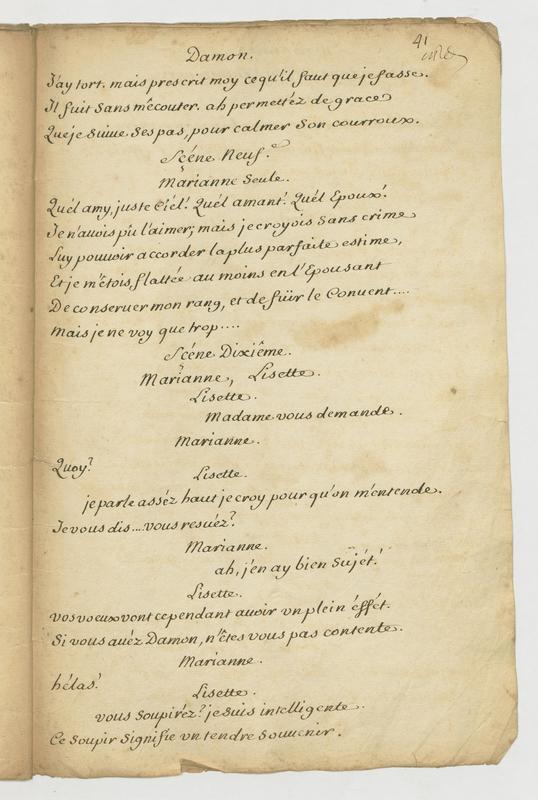 41
Damon.
J'ay tort. mais prescrit moy ce qu'il faut que je fasse.
Il fuit sans m'écouter. ah permettéz de grace
Que je suiue ses pas, pour calmer son courroux.
Scéne Neuf.e
Marianne seule.
Quél amy, juste Ciél! Quél amant! Quél Epoux!
Je n'auois pû l'aimer; mais je croyois sans crime
Luy pouuoir accorder la plus parfaite estime,
Et je m'étois flattée au moins en l'Epousant
De conseruer mon rang, et de fuïr le Conuent....
Mais je ne voy que trop....
Scéne Dixiême.
Marianne, Lisette.
Lisette.
Madame vous demande.
Marianne.
Quoy?
Lisette.
je parle asséz haut je croy pour qu'on m'entende.
Je vous dis... vous resuéz?
Marianne.
ah, j'en ay bien sujét!
Lisette.
vos voeux vont cependant auoir vn plein éffét.
Si vous auéz Damon, n'étes vous pas contente.
Marianne.
hélas!
Lisette.
vous soupiréz? je suis intelligente.
Ce soupir signifie vn tendre souuenir.